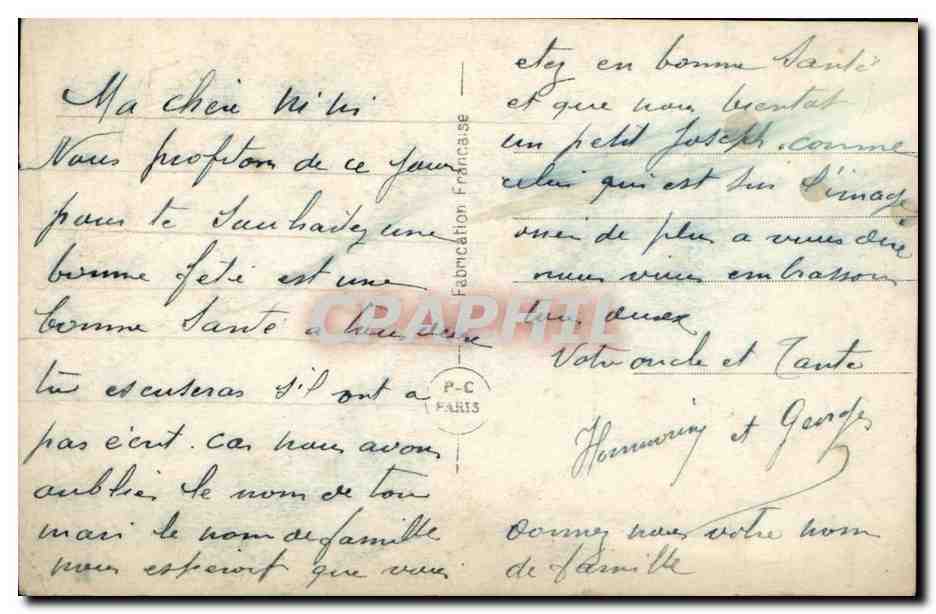 Ma chère Nini
Nous profitons de ce jour
pour te Souhaitez une
bonne fête est une
bonne Santé a tous deux
tu escuseras s'il ont a
pas écrit. car nous avons
oublier le nom de ton
mari le nom de famille
nous espéront que vous
etez en bonne Santé
et que nous bientot
un petit Joseph. comme
celui qui est sur l'image
rien de plus a vous dire
nous vous embrassons
tous deux
Votre oncle et Tante
et Georges
donnez nous votre nom
de famille
Fabrication Française
P-C
PARIS
CPAPHIL